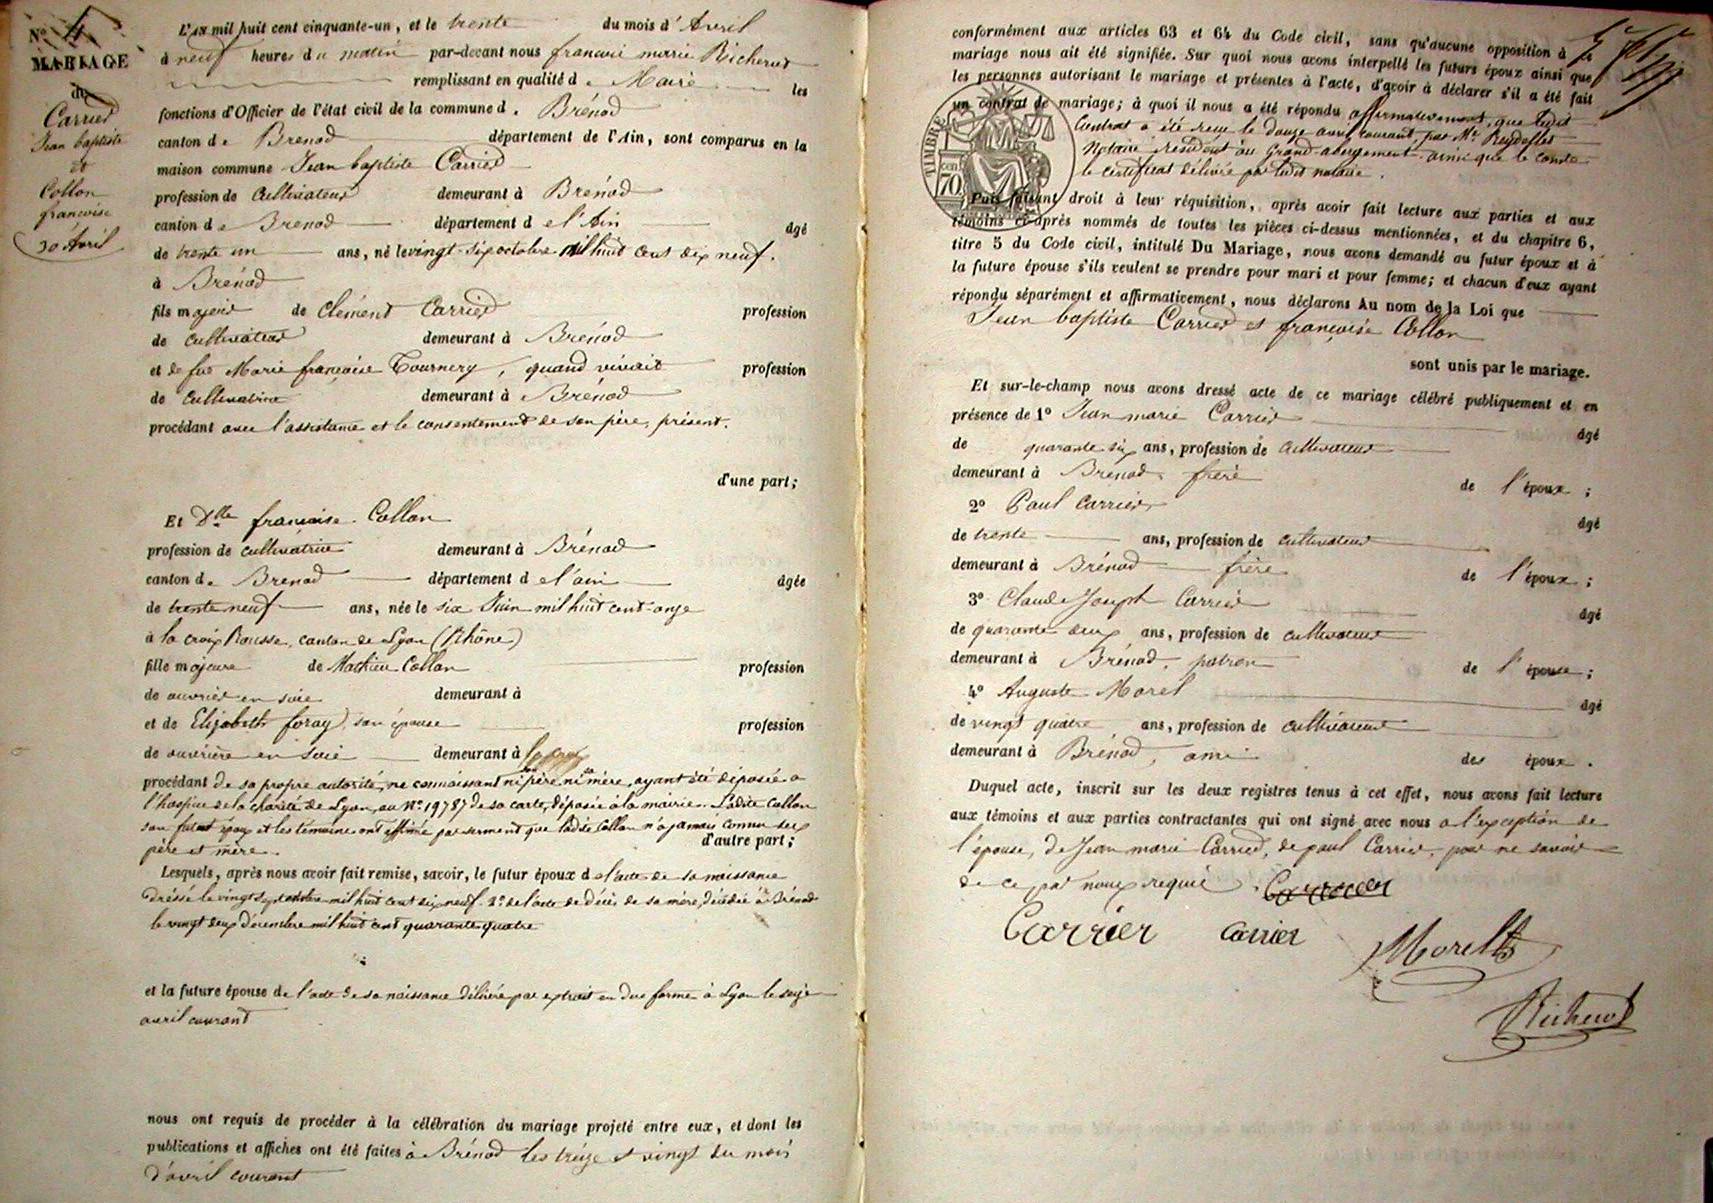 No 4
MARIAGE
de
Carrier
Jean baptiste
et
Collon
françoise
30 Avril
L'AN mil huit cent cinquante-un, et le trente du mois d'Avril
à neuf heures du matin par-devant nous françois marie Richerot
remplissant en qualité de Maire les
fonctions d'Officier de l'état civil de la commune d. Brénod
canton de Brenod département de l'Ain, sont comparus en la
maison commune Jean baptiste Carrier
profession de Cultivateur demeurant à Brénod
canton de Brenod département de l'Ain âgé
de trente un ans, né le vingt-six octobre mil huit cent dix neuf.
à Brénod
fils majeur de Clément Carrier profession
de cultivateur demeurant à Brénod
et de fue Marie françoise Tournery, quand vivait profession
de cultivatrice demeurant à Brénod
procédant avec l'assistance et le consentement de son père, présent.
d'une part;
Et Dlle françoise Collon
profession de cultivatrice demeurant à Brénod
canton de Brenod département de l'ain âgée
de trente neuf ans, née le six Juin mil huit cent onze
à la croix Rousse, canton de Lyon (Rhône)
fille majeure de Mathieu Collon profession
de ouvrier en soie demeurant à
et de Elizabeth foray, son épouse profession
de ouvrière en soie demeurant à
procédant de sa propre autorité, ne connaissant ni son père ni sa mère, ayant été déposée a
l'hospice de la charité de Lyon, au No 19787 de sa carte, déposée à la mairie. Ladite Collon
son futur époux et les témoins ont affirmé par serment que ladite Collon n'a jamais connu ses
père et mère. d'autre part;
Lesquels, après nous avoir fait remise, savoir, le futur époux de l'acte de sa naissance
dressé le vingt sept octobre mil huit cent dix neuf. 2° de l'acte de décès de sa mère, décédée à Brénod
le vingt deux décembre mil huit cent quarante quatre
et la future épouse de l'acte de sa naissance délivré par extrait en due forme à Lyon le seize
avril courant
nous ont requis de procéder à la célébration du mariage projeté entre eux, et dont les
publications et affiches ont été faites à Brénod les treize et vingt du mois
d'avril courant
conformément aux articles 63 et 64 du Code civil, sans qu'aucune opposition à
mariage nous ait été signifiée. Sur quoi nous avons interpellé les futurs époux ainsi que
les personnes autorisant le mariage et présentes à l'acte, d'avoir à déclarer s'il a été fait
un contrat de mariage; à quoi il nous a été répondu affirmativement, que ledit
Contrat a été reçu le douze avril courant par Me Reydellet
Notaire résident au Grand-abergement ainsi que le conste
le certificat délivré par ledit notaire.
TIMBRE
70
Puis faisant droit à leur réquisition, après avoir fait lecture aux parties et aux
témoins ci-après nommés de toutes les pièces ci-dessus mentionnées, et du chapitre 6,
titre 5 du Code civil, intitulé Du Mariage, nous avons demandé au futur époux et à
la future épouse s'ils veulent se prendre pour mari et pour femme; et chacun d'eux ayant
répondu séparément et affirmativement, nous déclarons Au nom de la Loi que
Jean baptiste Carrier et françoise Collon
sont unis par le mariage.
Et sur-le-champ nous avons dressé acte de ce mariage célébré publiquement et en
présence de 1° Jean marie Carrier âgé
de quarante six ans, profession de cultivateur
demeurant à Brénod, frère de l'époux;
2° Paul Carrier, âgé
de trente ans, profession de cultivateur
demeurant à Brénod frère de l'époux;
3° Claude Joseph Carrier âgé
de quarante deux ans, profession de cultivateur
demeurant à Brénod, patron de l'épouse;
4° Auguste Morel âgé
de vingt quatre ans, profession de cultivateur
demeurant à Brénod, ami des époux.
Duquel acte, inscrit sur les deux registres tenus à cet effet, nous avons fait lecture
aux témoins et aux parties contractantes qui ont signé avec nous a l'exception de
l'épouse, de Jean marie Carrier, de paul Carrier, pour ne savoir
de ce par nous requis.
Carrier carrier
Morel
Richerot